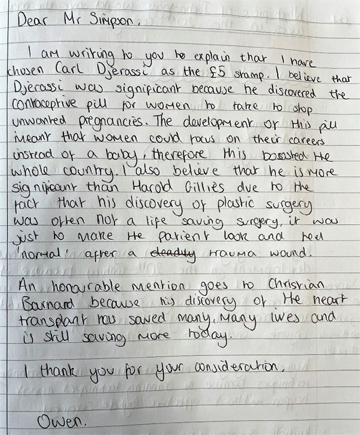 Dear Mr Simpson,
I am writing to you to explain that I have
chosen Carl Djerassi as the £5 stamp. I believe that
Djerassi was significant because he discovered the
contraceptive pill for women to take to stop
unwanted pregnancies. The development of this pill
meant that women could focus on their careers
instead of a baby, therefore this boosted the
whole country. I also believe that he is more
significant than Harold Gillies due to the
fact that his discovery of plastic surgery
was often not a life saving surgery, it was
just to make the patient look and feel
'normal' after a deadly trauma wound.
An honourable mention goes to Christian
Barnard because his discovery of the heart
transplant has saved many, many lives and
is still saving more today.
I thank you for your consideration.
Owen.